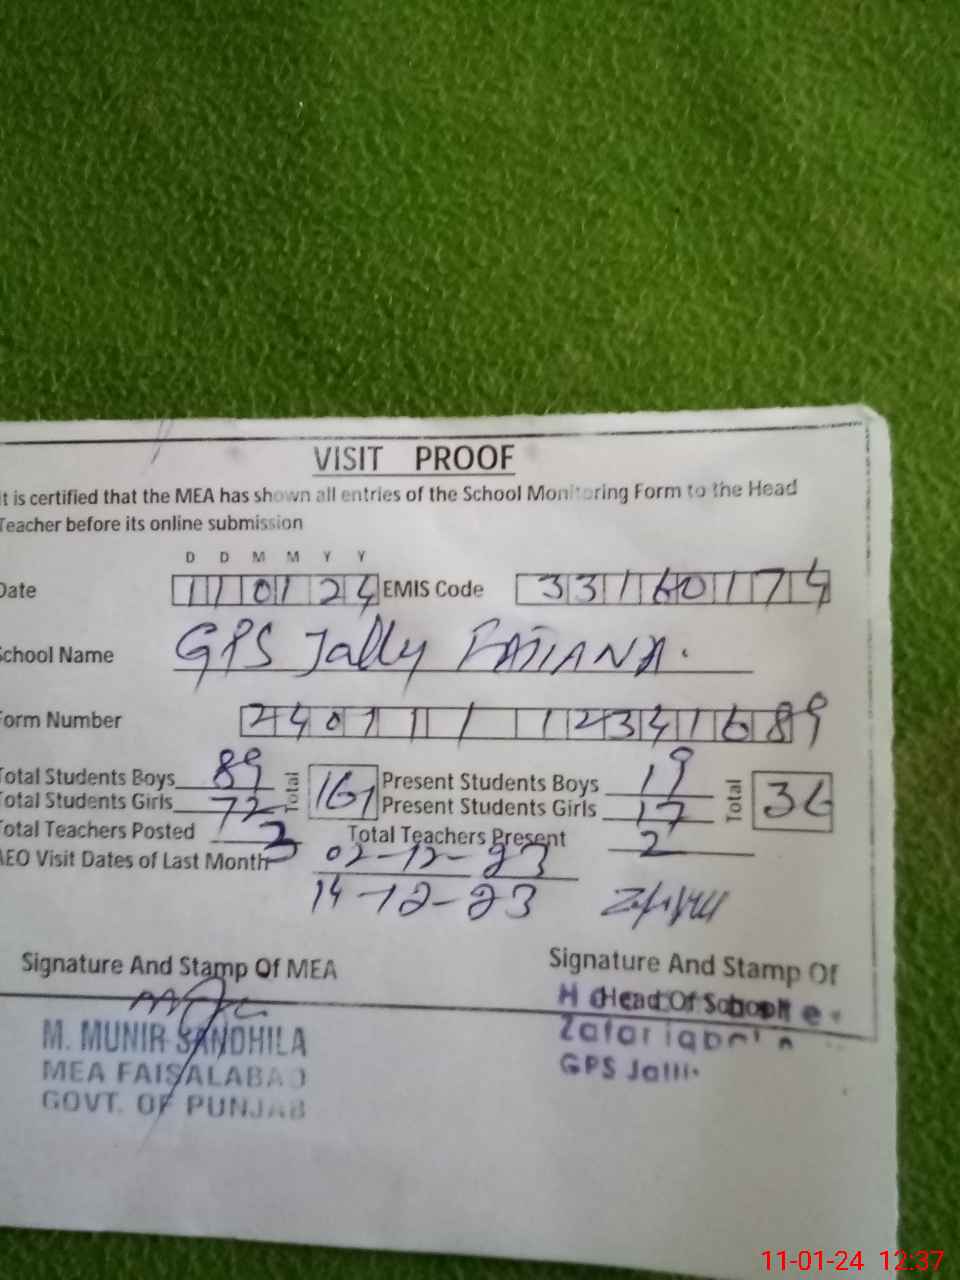 VISIT PROOF
it is certified that the MEA has shown all entries of the School Monitoring Form to the Head
Teacher before its online submission
D D M M Y Y
Date 110124 EMIS Code 33160174
School Name GPS Jally FATIANA.
Form Number 2401111 12341689
Total Students Boys 89 Total 161 Present Students Boys 19 Total 36
Total Students Girls 72 Present Students Girls 17
Total Teachers Posted 3 Total Teachers Present 2
AEO Visit Dates of Last Month 02-12-23
14-12-23
Signature And Stamp Of MEA Signature And Stamp Of
Head Of School
M. MUNIR SANDHILA
MEA FAISALABAD
GOVT. OF PUNJAB
Zafar iqbal
GPS Jalli
11-01-24 12:37